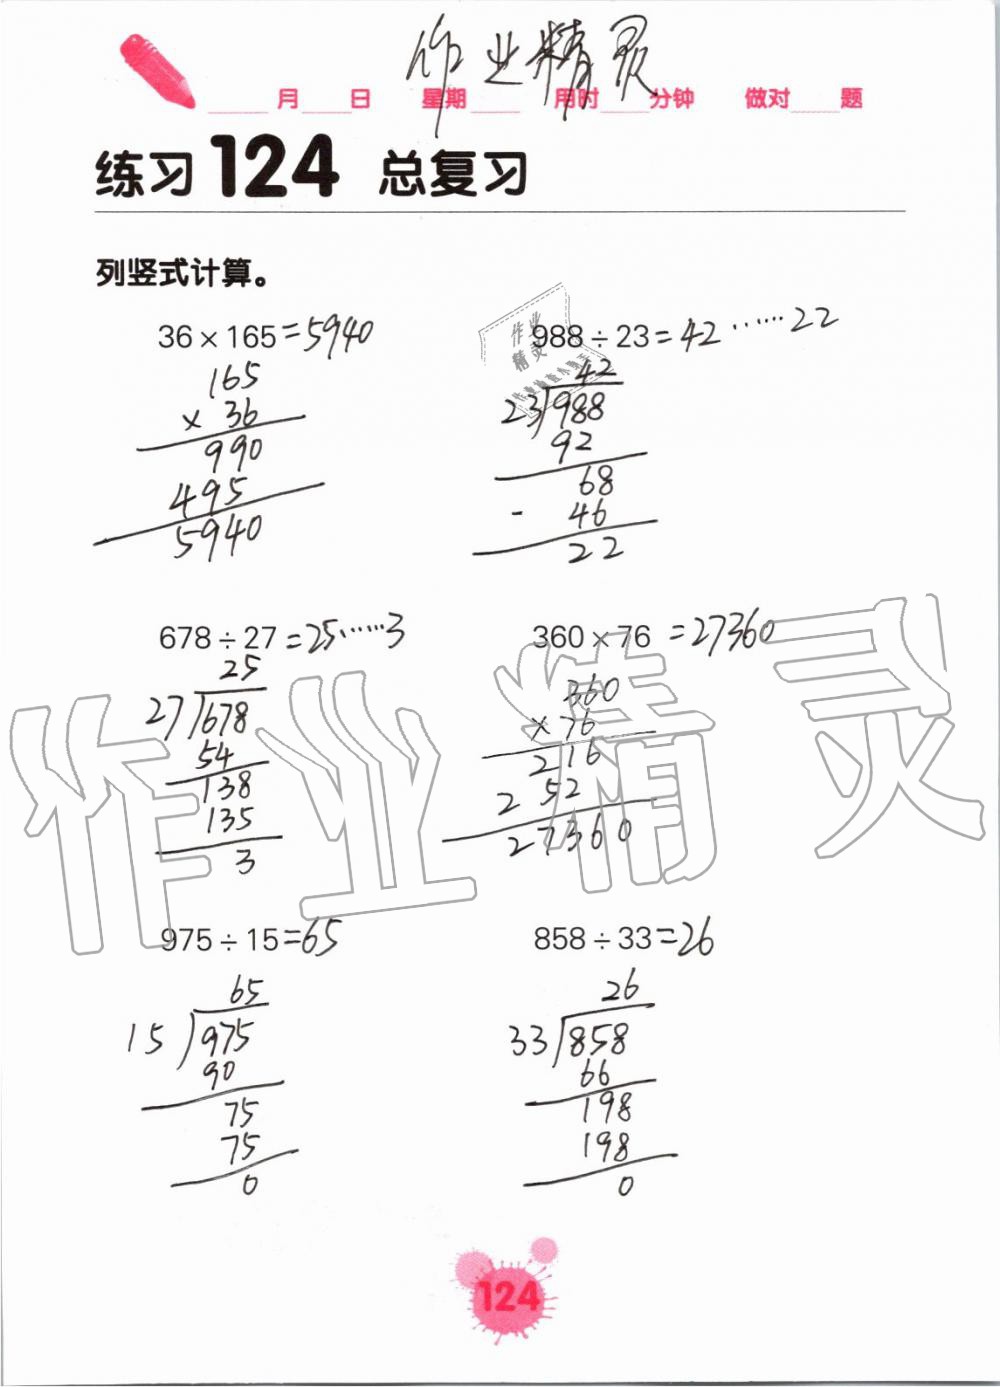 作业精灵
月 日 星期 用时 分钟 做对 题
练习124 总复习
列竖式计算。
36×165=5940
165
× 36
990
495
5940
作业
精灵
988÷23=42……22
42
23 988
92
68
- 46
22
678÷27=25……3
25
27 678
54
138
135
3
360×76=27360
360
×76
216
252
27360
作业精灵
975÷15=65
65
15 975
90
75
75
0
858÷33=26
26
33 858
66
198
198
0
124